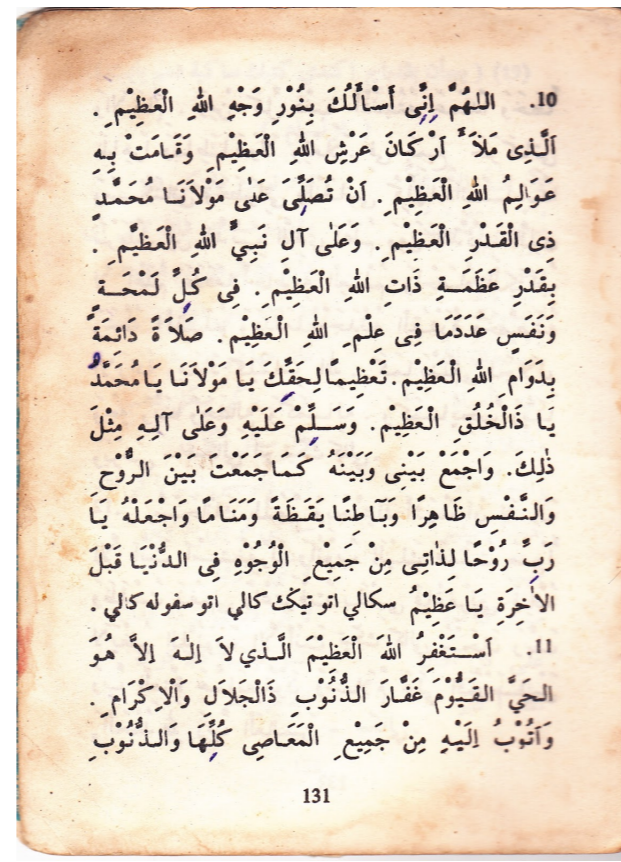 10. اللهُمَّ إِنِّى أَسْأَلُكَ بِنُوْرِ وَجْهِ اللهِ الْعَظِيْمِ .
اَلَّذِى مَلَأَ اَرْكَانَ عَرْشِ اللهِ الْعَظِيْمِ وَقَامَتْ بِهِ
عَوَالِمُ اللهِ الْعَظِيْمِ . اَنْ تُصَلِّىَ عَلٰى مَوْلاَنَا مُحَمَّدٍ
ذِى الْقَدْرِ الْعَظِيْمِ . وَعَلٰى آلِ نَبِيِّ اللهِ الْعَظِيْمِ .
بِقَدْرِ عَظَمَـةِ ذَاتِ اللهِ الْعَظِيْمِ . فِى كُلِّ لَمْحَـةٍ
وَنَفَسٍ عَدَدَمَا فِى عِلْمِ اللهِ الْعَظِيْمِ . صَلاَةً دَائِمَةً
بِدَوَامِ اللهِ الْعَظِيْمِ . تَعْظِيمًا لِحَقِّكَ يَا مَوْلاَنَا يَا مُحَمَّدُ
يَا ذَالْخُلُقِ الْعَظِيْمِ . وَسَـلِّمْ عَلَيْهِ وَعَلٰى آلِهِ مِثْلَ
ذٰلِكَ . وَاجْمَعْ بَيْنِى وَبَيْنَهُ كَمَا جَمَعْتَ بَيْنَ الرُّوْحِ
وَالنَّفْسِ ظَاهِرًا وَبَاطِنًا يَقَظَةً وَمَنَامًا وَاجْعَلْهُ يَا
رَبِّ رُوْحًا لِذَاتِى مِنْ جَمِيْعِ الْوُجُوْهِ فِى الدُّنْيَا قَبْلَ
الاٰخِرَةِ يَا عَظِيْمُ سكالي اتو تيڬ كالي اتو سفوله كالي .
11. اَسْـتَغْفِرُ اللهَ الْعَظِيْمَ الَّـذي لاَ اِلٰـهَ اِلاَّ هُوَ
الحَيَّ القَيُّوْمَ غَفَّارَ الذُّنُوْبِ ذَالْجَلاَلِ وَالْاِكْرَامِ .
وَاَتُوْبُ اِلَيْهِ مِنْ جَمِيْعِ الْمَعَاصِى كُلِّهَا وَالذُّنُوْبِ
131